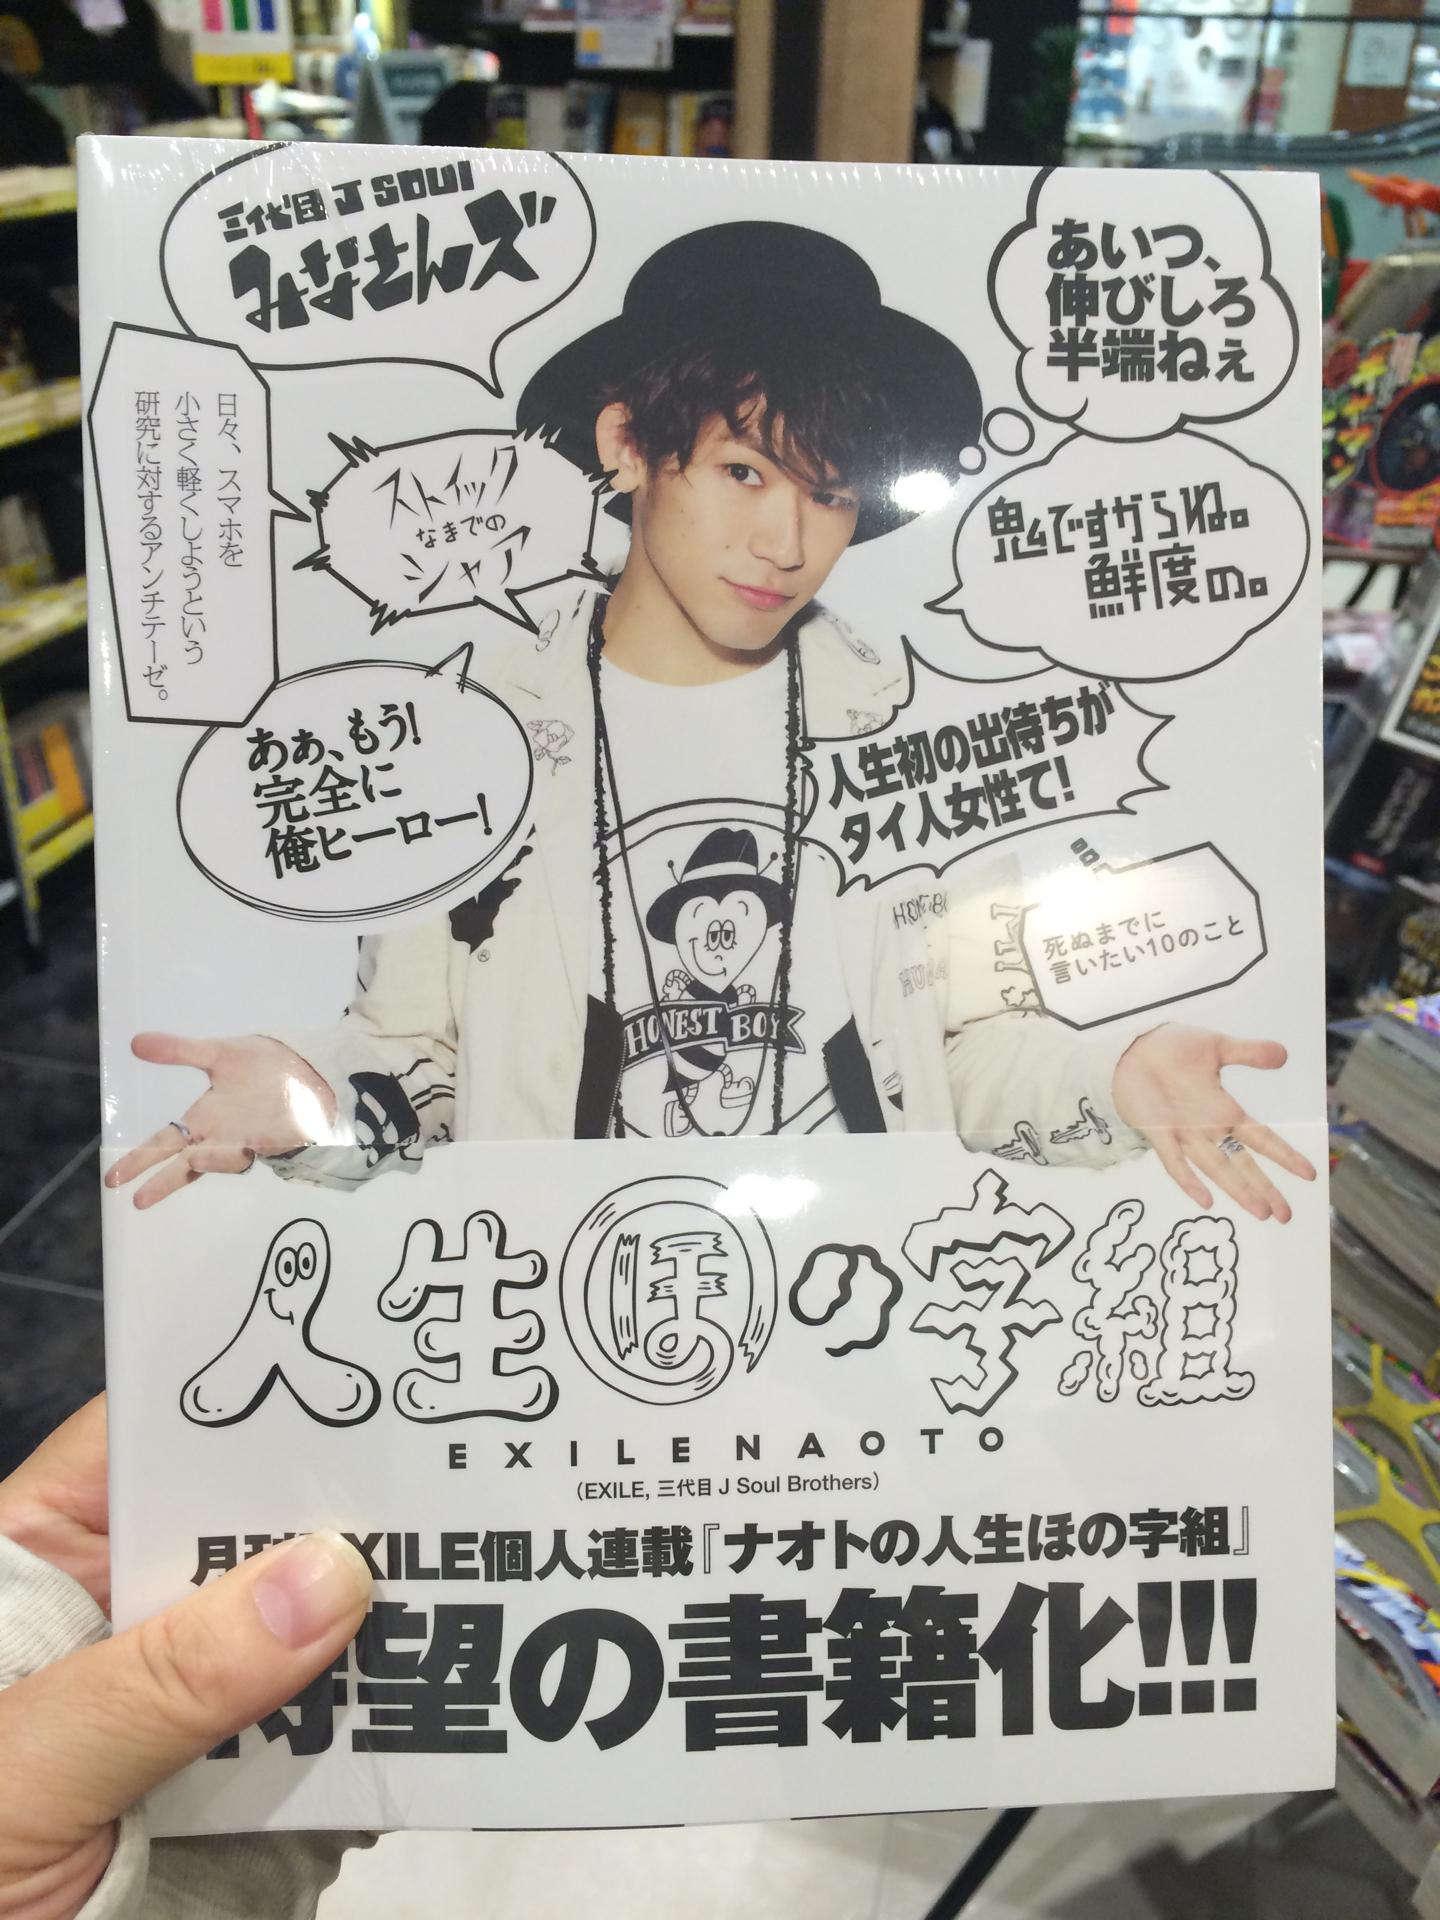 三代目 J SOUL
みなさんズ
あいつ、
伸びしろ
半端ねぇ
日々、スマホを
小さく軽くしようという
研究に対するアンチテーゼ。
ストイック
なまでの
シャア
鬼ですからね。
鮮度の。
あぁ、もう!
完全に
俺ヒーロー!
人生初の出待ちが
タイ人女性て!
死ぬまでに
言いたい10のこと
HONEST BOY
®
人生ほの字組
EXILE NAOTO
(EXILE, 三代目 J Soul Brothers)
月刊EXILE個人連載『ナオトの人生ほの字組』
待望の書籍化!!!